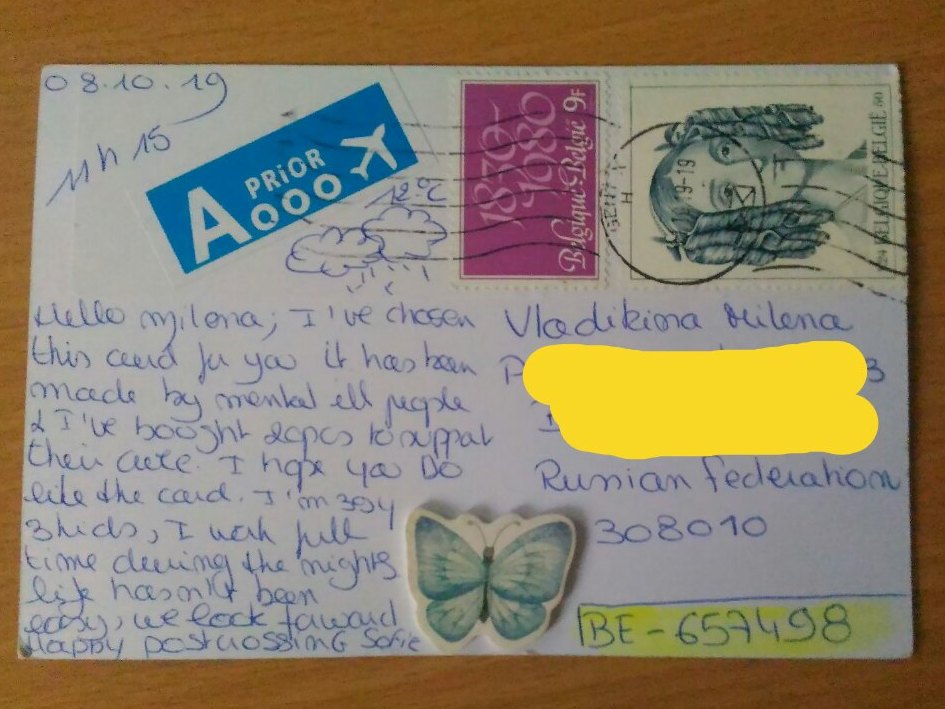 08.10.19
11h15
A PRIOR
12°C
1830-1980
Belgique-België 9F
BELGIQUE-BELGIË 60
9-19
Hello Milena, I've chosen
this card for you it has been
made by mental ill people
& I've bought 20pcs to support
their care. I hope you DO
like the card. I'm 39y
3kids, I work full
time during the nights
life hasn't been
easy, we look forward
Happy postcrossing Sofie
Vladikina Milena
P
3
Russian Federation
308010
BE-657498